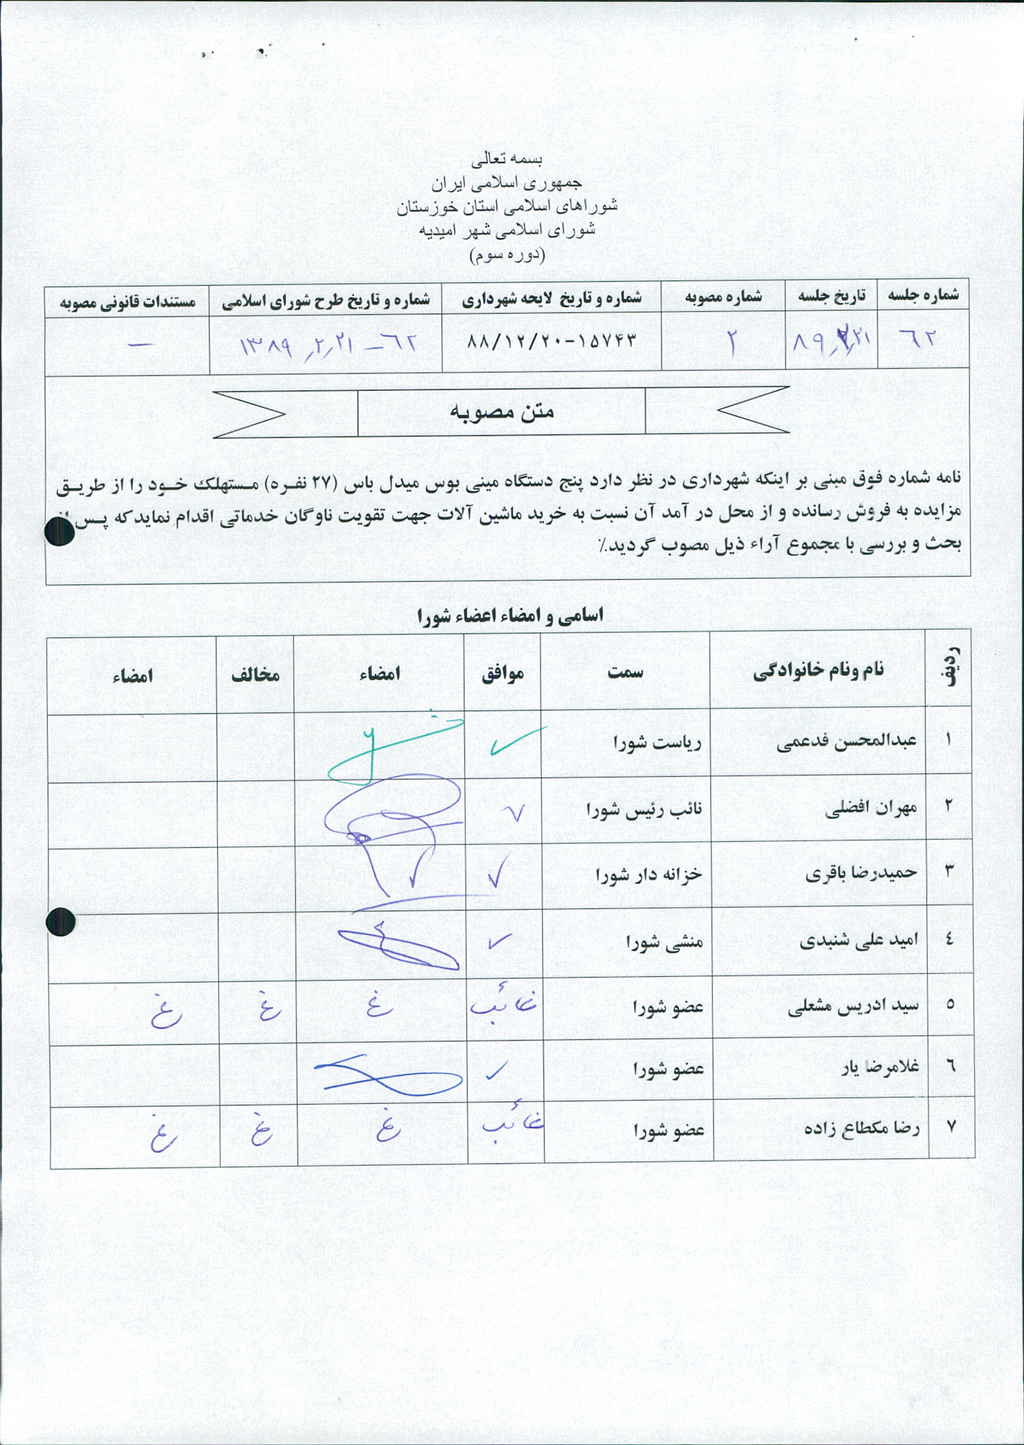 بسمه تعالی
جمهوری اسلامی ایران
شوراهای اسلامی استان خوزستان
شورای اسلامی شهر امیدیه
(دوره سوم)
شماره جلسه تاریخ جلسه شماره مصوبه شماره و تاریخ لایحه شهرداری شماره و تاریخ طرح شورای اسلامی مستندات قانونی مصوبه
۶۲ ۸۹٫۲٫۲۱ ۲ ۱۵۷۴۳-۸۸/۱۲/۲۰ ۶۲ – ۱۳۸۹٫۲٫۲۱ —
متن مصوبه
نامه شماره فوق مبنی بر اینکه شهرداری در نظر دارد پنج دستگاه مینی بوس میدل باس (۲۷ نفره) مستهلک خود را از طریق
مزایده به فروش رسانده و از محل در آمد آن نسبت به خرید ماشین آلات جهت تقویت ناوگان خدماتی اقدام نماید که پس از
بحث و بررسی با مجموع آراء ذیل مصوب گردید.٪
اسامی و امضاء اعضاء شورا
ردیف نام ونام خانوادگی سمت موافق امضاء مخالف امضاء
۱ عبدالمحسن فدعمی ریاست شورا ✓
۲ مهران افضلی نائب رئیس شورا ✓
۳ حمیدرضا باقری خزانه دار شورا ✓
٤ امید علی شنبدی منشی شورا ✓
۵ سید ادریس مشعلی عضو شورا غائب غ غ غ
٦ غلامرضا یار عضو شورا ✓
۷ رضا مکطاع زاده عضو شورا غائب غ غ غ